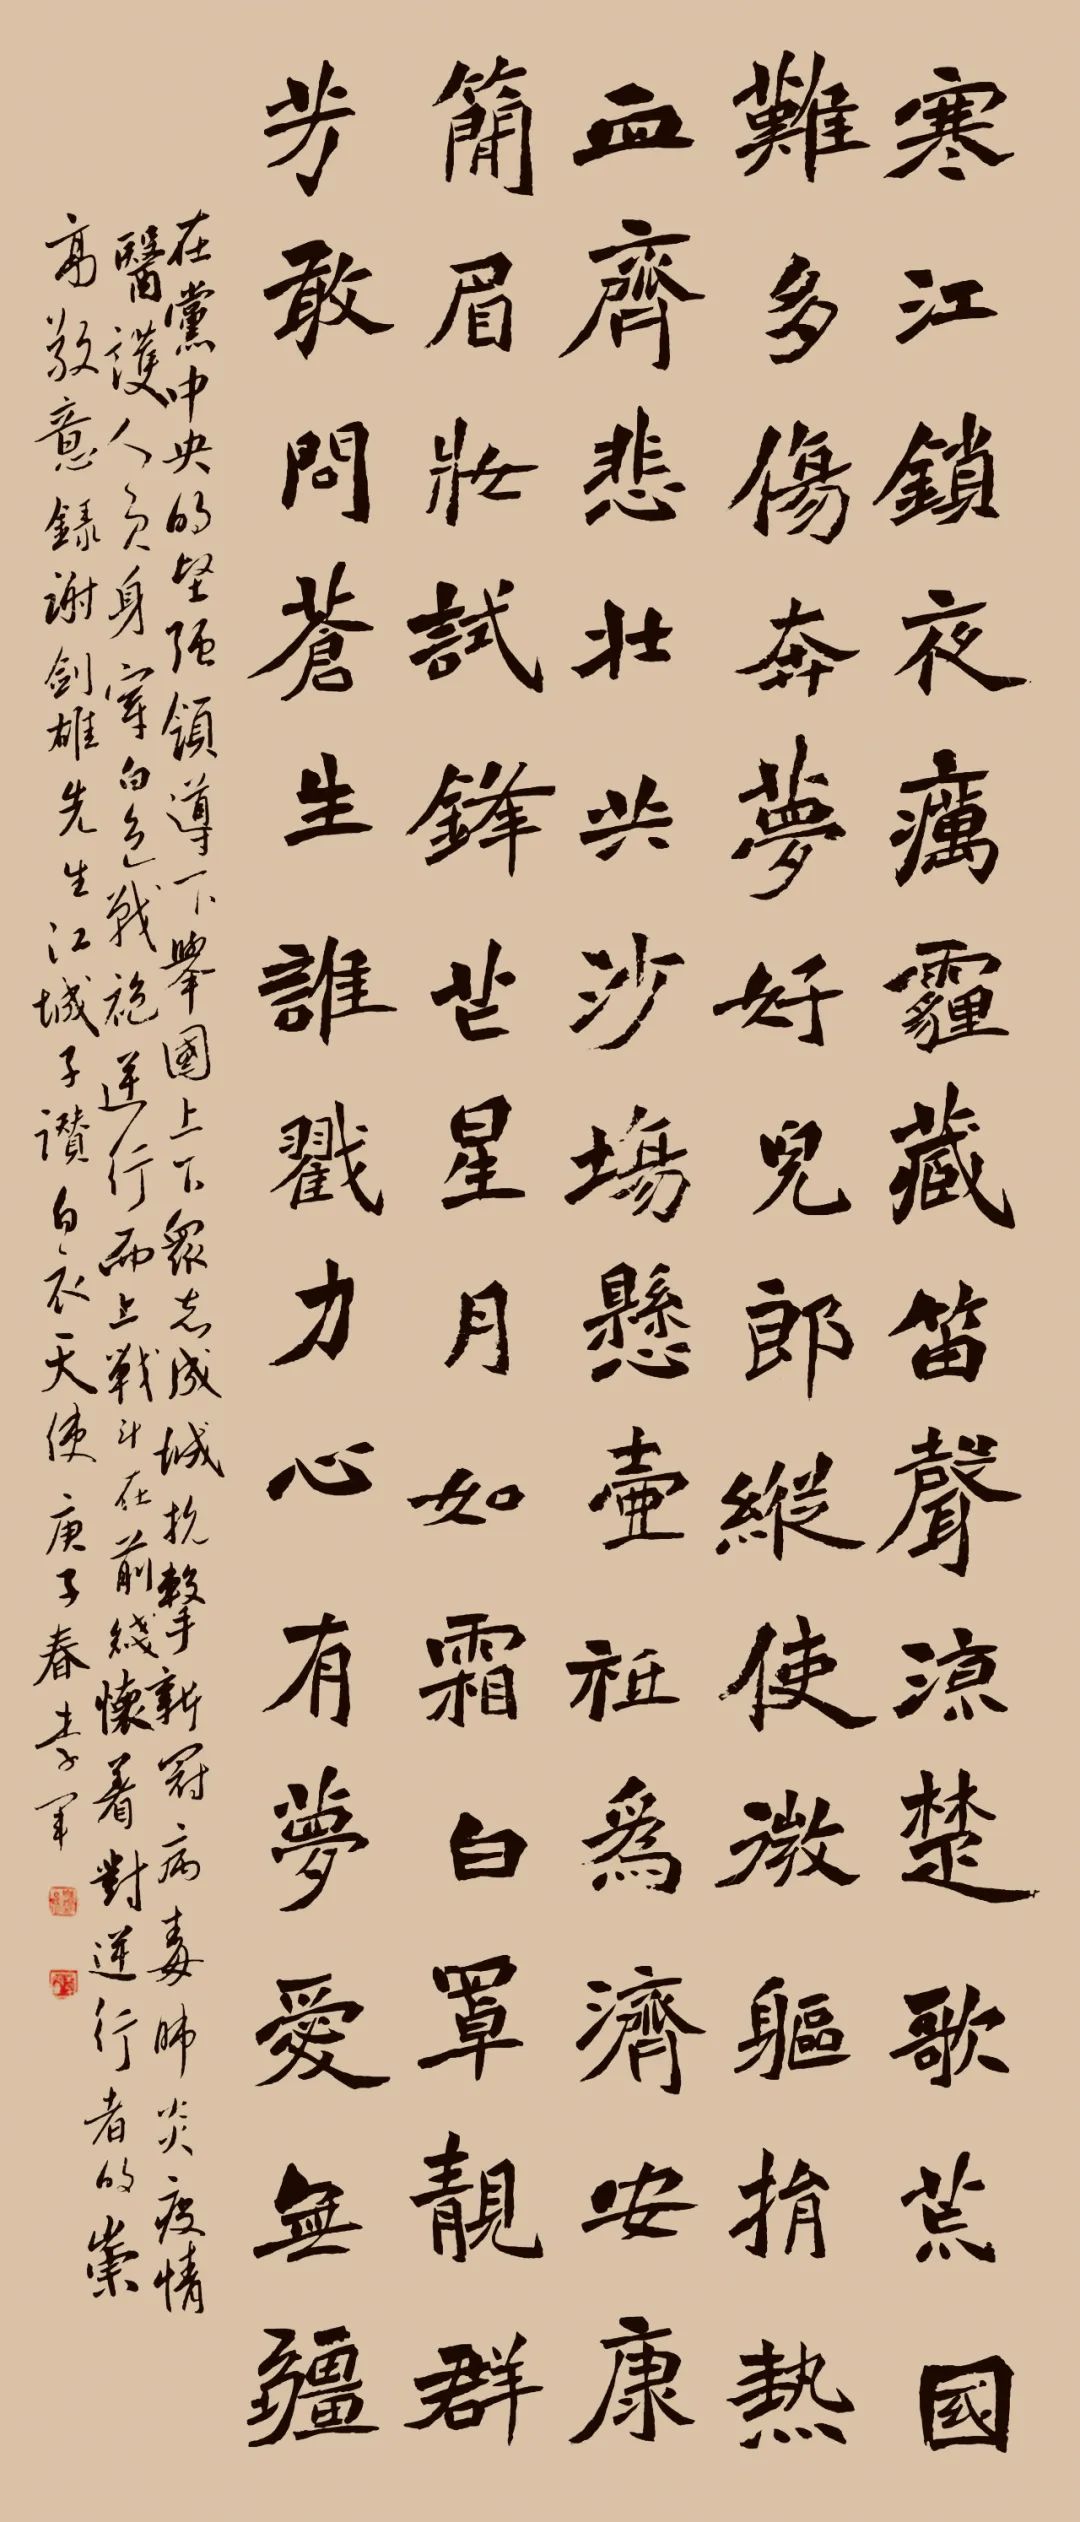 寒江鎖夜癘霾藏笛聲涼楚歌荒國
難多傷奔夢好兒郎縱使微軀捐熱
血齊悲壯共沙場懸壺祗為濟安康
簡眉妝試鋒芒星月如霜白罩靚群
芳敢問蒼生誰戳力心有夢愛無疆
在黨中央的堅强領導下舉國上下眾志成城抗擊新冠病毒肺炎疫情
醫護人員身穿白色戰袍逆行而上戰斗在前綫懷着對逆行者的崇
高敬意錄謝劍雄先生江城子讚白衣天使庚子春李軍